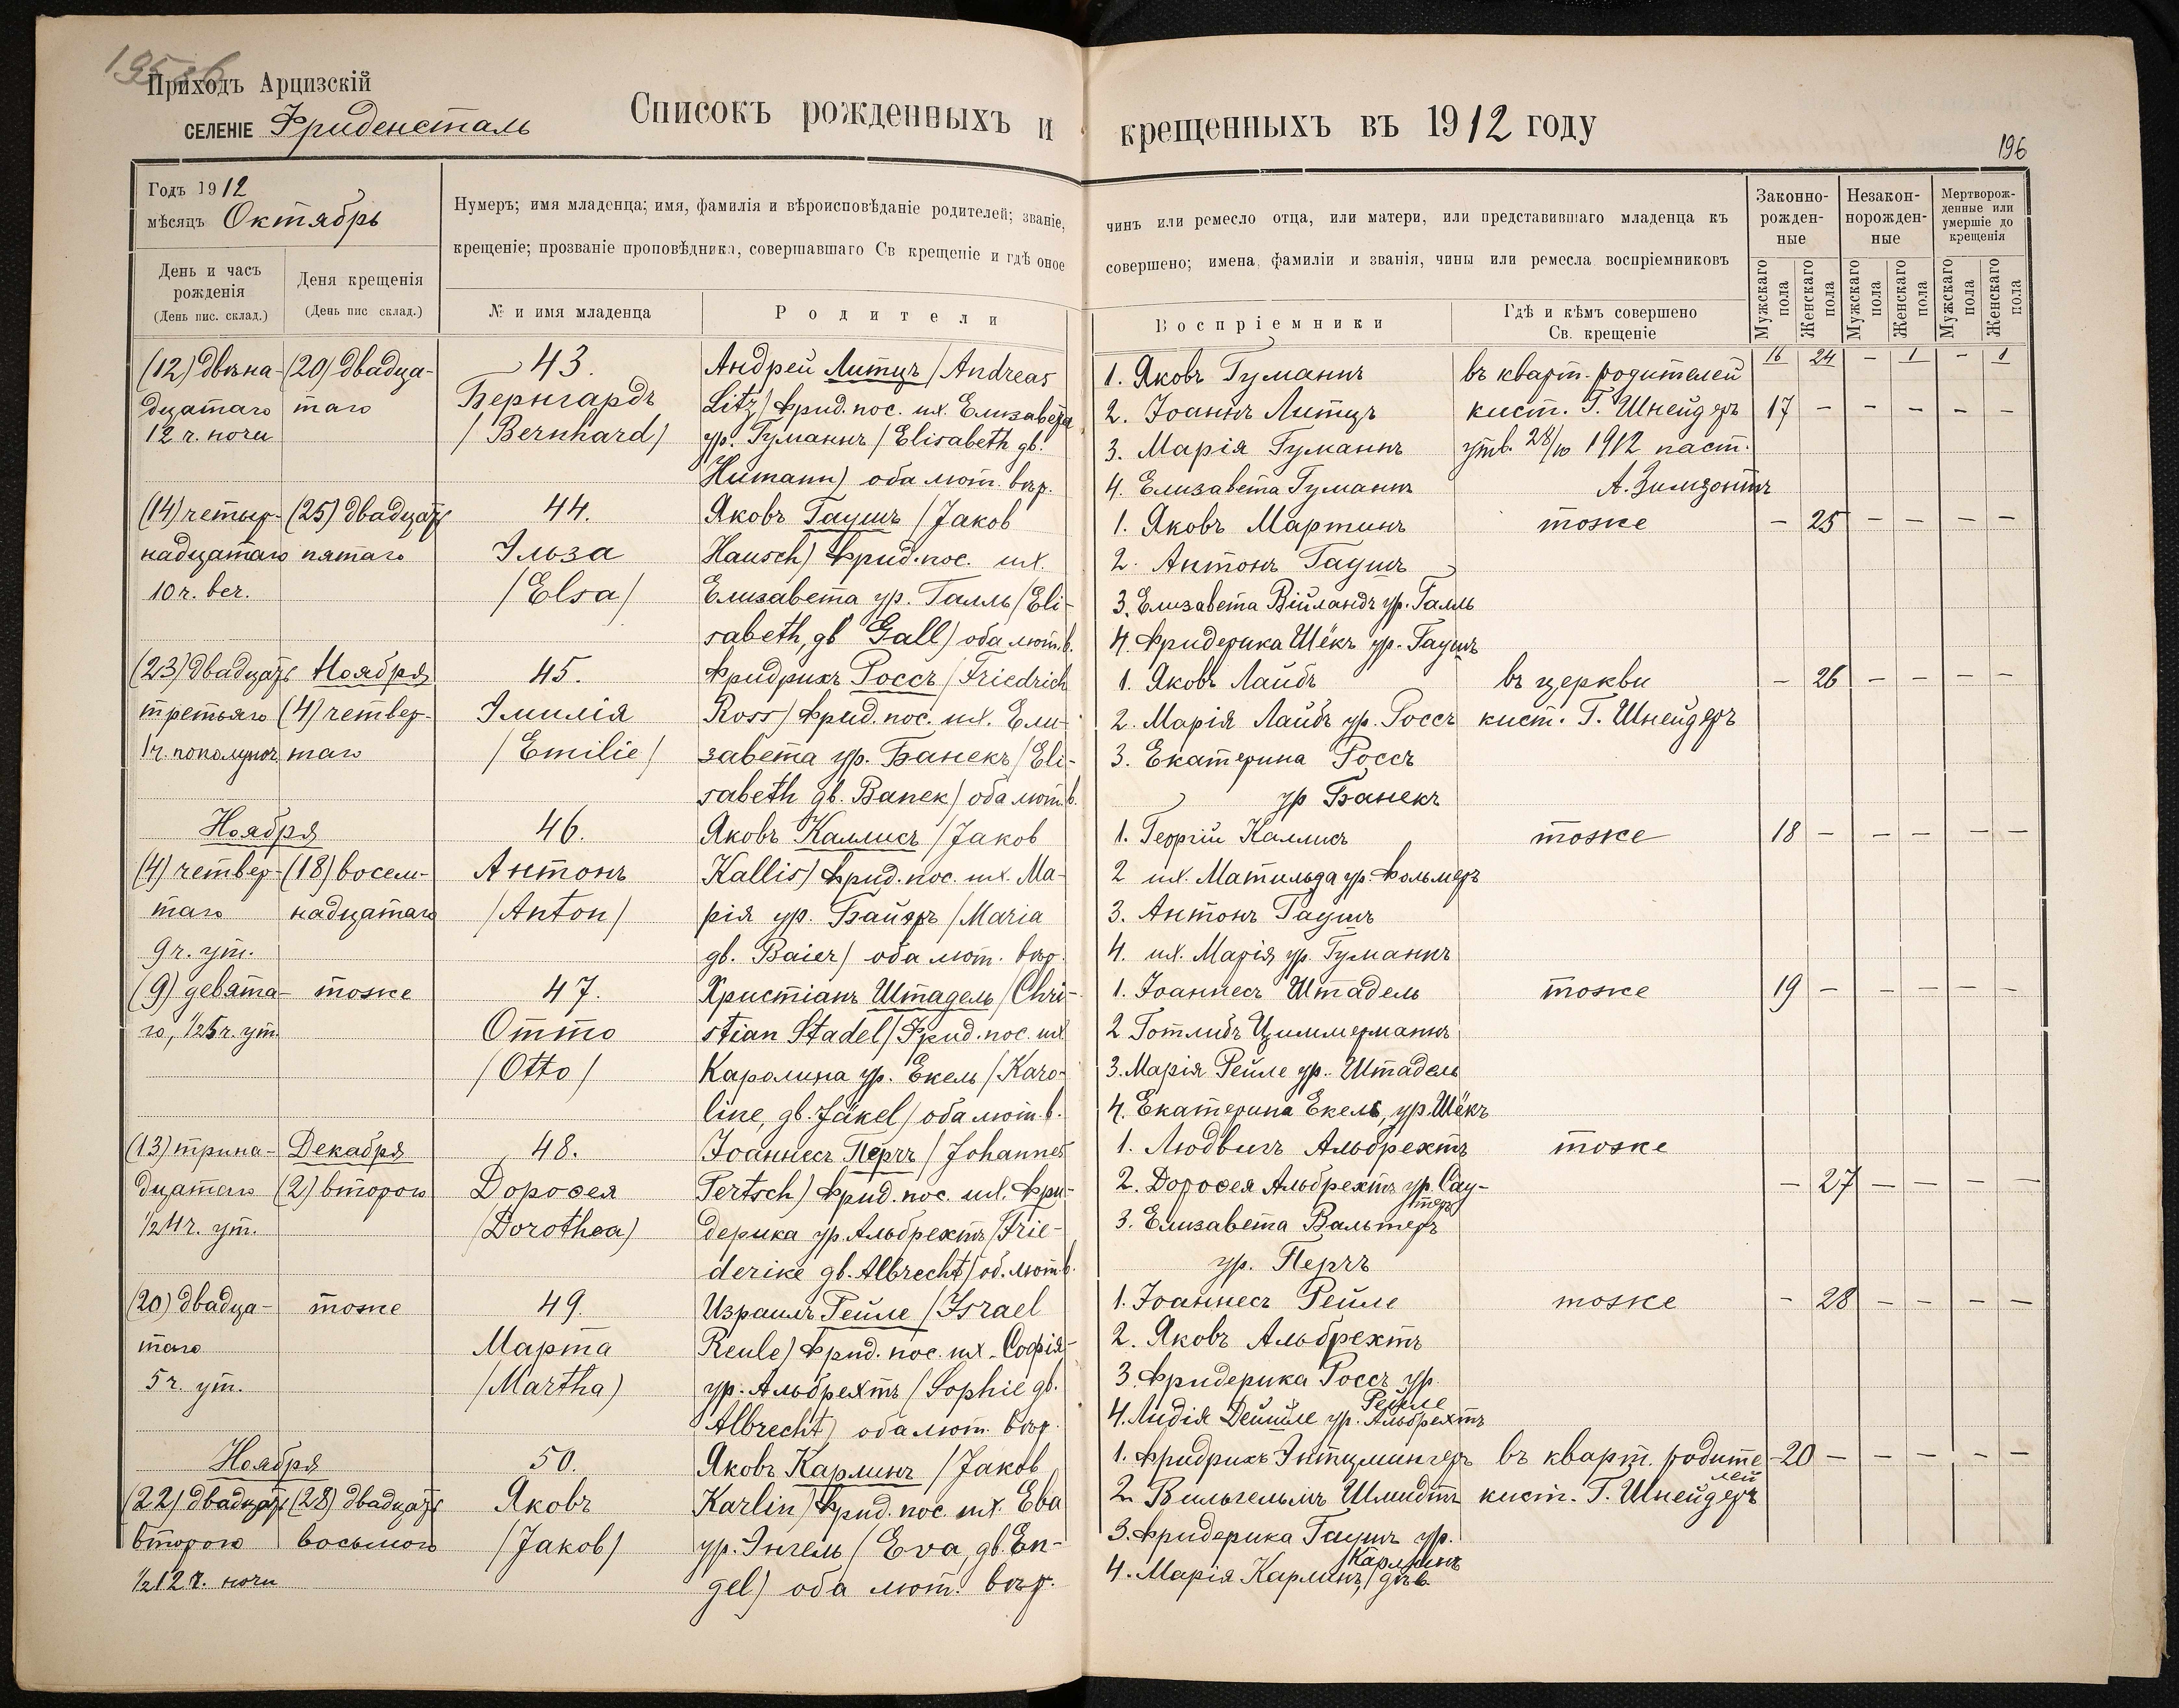 Приходъ Арцизскій
СЕЛЕНІЕ Фриденсталь
Списокъ рожденныхъ и крещенныхъ въ 1912 году
196
Годъ 1912
мѣсяцъ Октябрь
Нумеръ; имя младенца; имя, фамилія и вѣроисповѣданіе родителей; званіе, чинъ или ремесло отца, или матери, или представившаго младенца къ
крещеніе; прозваніе проповѣдника, совершавшаго Св крещеніе и гдѣ оное совершено; имена фамиліи и званія, чины или ремесла воспріемниковъ
День и часъ
рожденія
(День пис. склад.)
Деня крещенія
(День пис склад.)
№ и имя младенца
Родители
Воспріемники
Гдѣ и кѣмъ совершено
Св. крещеніе
Законно-
рожден-
ные
Незакон-
норожден-
ные
Мертворож-
денные или
умершіе до
крещенія
Мужскаго пола
Женскаго пола
Мужскаго пола
Женскаго пола
Мужскаго пола
Женскаго пола
16 24 – 1 – 1
(12) двѣна-
дцатаго
12 ч. ночи
(20) двадца-
таго
43.
Бернгардъ
/Bernhard/
Андрей Литцъ /Andreas
Litz) Фрид. пос. их. Елизавета
ур. Гуманнъ /Elisabeth gb.
Humann) оба лют. вѣр.
1. Яковъ Гуманнъ
2. Іоаннъ Литцъ
3. Марія Гуманнъ
4. Елизавета Гуманнъ
въ кварт. родителей
кист. Г. Шнейдеръ
утв. 28/10 1912 паст.
А. Зимзонтъ
17 – – – – –
(14) четыр-
надцатаго
10 ч. веч.
(25) двадцать
пятаго
44.
Эльза
/Elsa/
Яковъ Гаушъ /Jakob
Hausch) Фрид. пос. их.
Елизавета ур. Галль /Eli-
sabeth, gb Gall) оба лют. в.
1. Яковъ Мартинъ
2. Антонъ Гаушъ
3. Елизавета Війландъ ур. Галль
4. Фридерика Шёкъ ур. Гаушъ
тоже
– 25 – – – –
(23) двадцать
третьяго
1 ч. пополуноч.
Ноября
(4) четвер-
таго
45.
Эмилія
/Emilie/
Фридрихъ Россъ /Friedrich
Ross) Фрид. пос. их. Ели-
завета ур. Банекъ /Eli-
sabeth gb. Banek) оба лют. в.
1. Яковъ Лайбъ
2. Марія Лайбъ ур. Россъ
3. Екатерина Россъ
ур Банекъ
въ церкви
кист. Г. Шнейдеръ
– 26 – – – –
Ноября
(4) четвер-
таго
9 ч. ут.
(18) восем-
надцатаго
46.
Антонъ
/Anton/
Яковъ Каллисъ /Jakob
Kallis) Фрид. пос. их. Ма-
рія ур. Байеръ /Maria
gb. Baier) оба лют. вѣр.
1. Георгій Каллисъ
2 их. Матильда ур. Фольмеръ
3. Антонъ Гаушъ
4. их. Марія ур. Гуманнъ
тоже
18 – – – – –
(9) девята-
го, ½5 ч. ут.
тоже
47.
Отто
/Otto/
Христіанъ Штадель /Chri-
stian Stadel/ Фрид. пос. их
Каролина ур. Екель /Karo-
line, gb. Jäkel/ оба лют. в.
1. Іоаннесъ Штадель
2 Готлибъ Циммерманнъ
3. Марія Рейле ур. Штадель
4. Екатерина Екель, ур. Шёкъ
тоже
19 – – – – –
(13) трина-
дцатаго
½4 ч. ут.
Декабря
(2) второго
48.
Доровея
/Dorothea)
Іоаннесъ Перчъ /Johannes
Pertsch) Фрид. пос. их. Фри-
дерика ур. Альбрехтъ /Frie-
derike gb. Albrecht/ об. лют. в.
1. Людвигъ Альбрехтъ
2. Доровея Альбрехтъ ур. Сау-
теръ
3. Елизавета Вальтеръ
ур. Перчъ
тоже
– 27 – – – –
(20) двадца-
таго
5 ч. ут.
тоже
49.
Марта
/Martha)
Израилъ Рейле /Israel
Reule) Фрид. пос. их. Софія
ур. Альбрехтъ /Sophie gb.
Albrecht) оба лют. вѣр.
1. Іоаннесъ Рейле
2. Яковъ Альбрехтъ
3. Фридерика Россъ ур.
Рейле
4. Лидія Дейшле ур. Альбрехтъ
тоже
– 28 – – – –
Ноября
(22) двадцать
второго
½12 ч. ночи
(28) двадцать
восьмого
50.
Яковъ
/Jakob/
Яковъ Карлинъ /Jakob
Karlin) Фрид. пос. их. Ева
ур. Энгель /Eva, gb. En-
gel) оба лют. вѣр.
1. Фридрихъ Энтцмингеръ
2. Вильгельмъ Шмидтъ
3. Фридерика Гаушъ ур.
Карлинъ
4. Марія Карлинъ, дѣв.
въ кварт. родите-
лей
кист. Г. Шнейдеръ
20 – – – – –